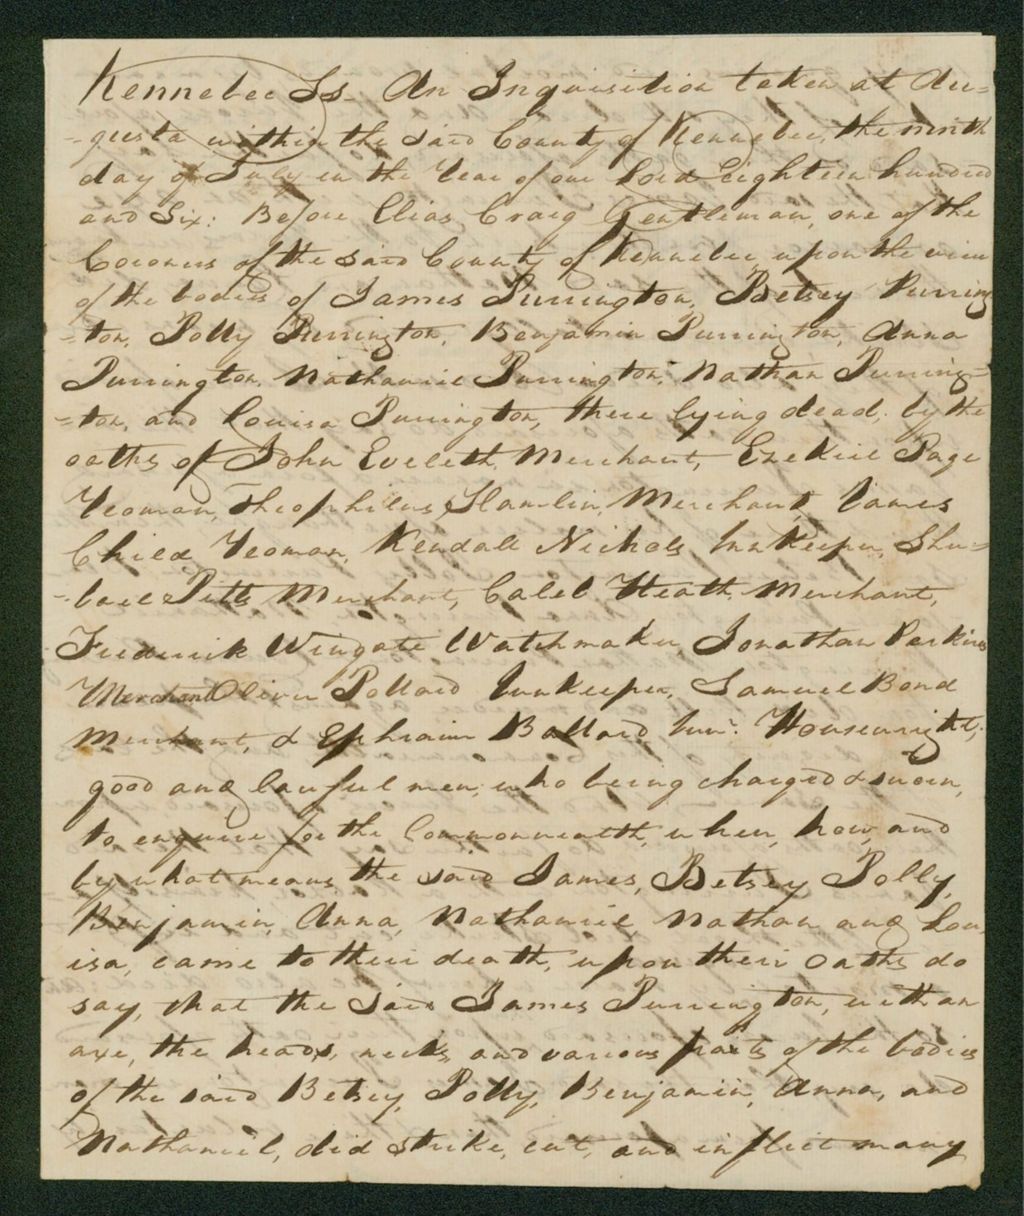 Kennebec Ss. An Inquisition taken at Au=
=gusta within the said County of Kennebec, the ninth
day of July in the Year of our Lord Eighteen hundred
and Six: Before Elias Craig Gentleman, one of the
Coroners of the said County of Kennebec, upon the view
of the bodies of James Purrington, Betsey Purring
=ton, Polly Purrington, Benjamin Purrington, Anna
Purrington, Nathaniel Purrington, Nathan Purring=
=ton, and Louisa Purrington, there lying dead, by the
oaths of John Eveleth, Merchant, Ezekiel Page
Yeoman, Theophilus Hamlin, Merchant James
Child Yeoman, Kendall Nichols Innkeeper, Shu=
=bael Pitts Merchant, Caleb Heath Merchant,
Frederick Wingate Watchmaker, Jonathan Perkins
Merchant Oliver Pollard Innkeeper, Samuel Bond
Merchant, & Ephraim Ballard Junr. Housewright,
good and lawful men, who being charged & sworn,
to enquire for the Commonwealth, when, how, and
by what means, the said James, Betsey Polly,
Benjamin, Anna, Nathaniel, Nathan and Lou
isa, came to their death, upon their oaths do
say, that the said James Purrington, with an
axe, the heads, necks, and various parts of the bodies
of the said Betsey, Polly, Benjamin, Anna, and
Nathaniel, did strike, cut, and inflict many